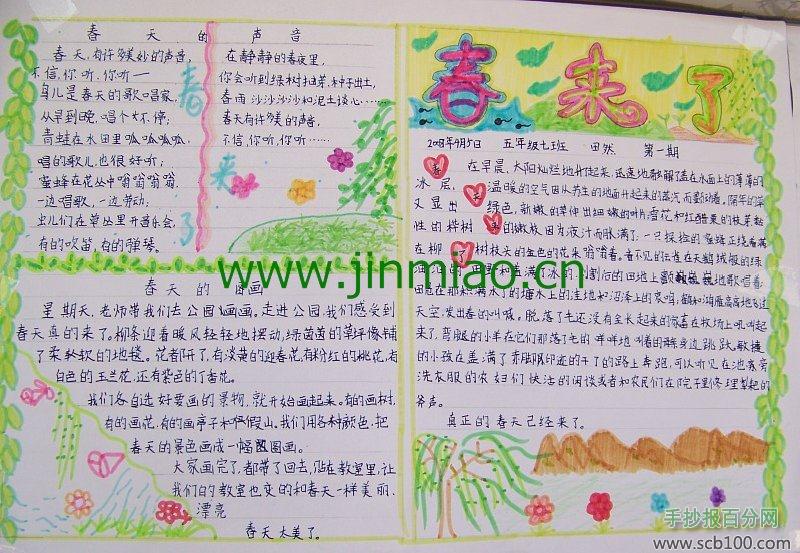 春天的声音
春天,有许多美妙的声音,
不信,你听,你听——
鸟儿是春天的歌唱家,
从早到晚,唱个不停;
青蛙在水田里呱呱呱呱,
唱的歌儿也很好听;
蜜蜂在花丛中嗡嗡嗡嗡,
一边唱歌,一边劳动;
虫儿们在草丛里开音乐会,
有的吹笛,有的弹琴。
在静静的春夜里,
你会听到绿树抽芽,种子出土,
春雨沙沙沙沙和泥土谈心……
春天有许多美的声音,
不信,你听,你听……
春来了
春天的图画
星期天,老师带我们去公园画画。走进公园,我们感受到
春天真的来了。柳条迎着暖风轻轻地摆动,绿茵茵的草坪像铺
了柔软的地毯。花者阝开了,有淡黄的迎春花,有粉红的桃花,有
白色的玉兰花,还有紫色的丁香花。
我们各自选好要画的景物,就开始画起来。有的画树,
有的画花,有的画亭子和假山。我们用各种颜色,把
春天的景色画成一幅图画。
大家画完了,都带了回去,贴在教室里,让
我们的教室也变的和春天一样美丽、
漂亮
春天太美了。
春来了
2008年9月5日 五年级七班 田然 第一期
春 在早晨,太阳灿烂地升起来,迅速地歌融了盖在水面上的薄薄的
冰层,温暖的空气因从苏生的地面升起来的蒸汽而颤动着,隔年的草
又显出绿色,新嫩的草伸出细嫩的叶片;雪花和红醋栗的枝芽
性的桦树的嫩枝因为液汁而脉满了;一只探捡的蜜蜂正绕着满
在柳树枝头的金色的花朵嗡嗡着。看不见的云雀在天鹅绒般的绿
田野和盖满了冰的、割割后的田地上颤巍巍地歌唱着;
田凫在那积满水了的塘水上的洼地如沼泽上的哀鸣;鹤和鸿雁高高地飞过
天空,发出春的叫喊。脱落了毛还没有全长起来的家畜在牧场上吼叫起
来了,弯腿的小羊在它们那落了毛的咩咩地叫着的母亲身边跳跃。敏捷
的小孩在盖满了赤脚脚印迹的干了的路上奔跑,可以听见在池袤旁
洗衣服的农妇们快活的闲谈或者和农民们在院子里修理犁耙的
斧声。
真正的春天已经来了。
www.jinmiao.cn
手抄报百分网
www.scb100.com